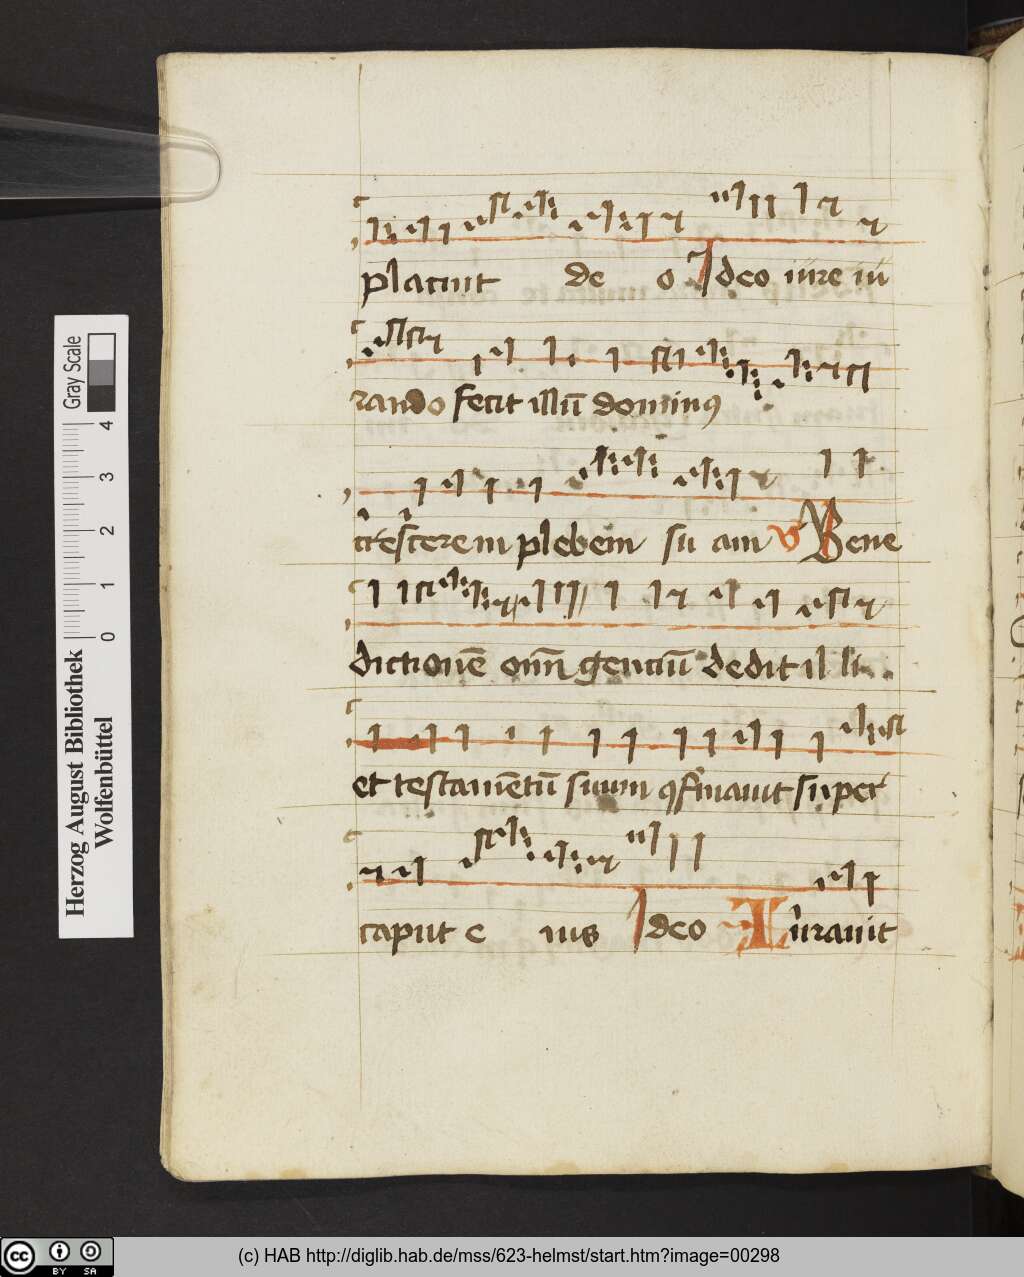 placuit de o Ideo iure iu
rando fecit illū dominꝯ
crescere in plebem su am ꝟ Bene
dictionē omn̄ genciū dedit il li
et testamētū suum ꝯfirmauit super
caput e ius Ideo Iurauit
Gray Scale
4
3
2
1
0
Herzog August Bibliothek
Wolfenbüttel
cc BY SA
(c) HAB http://diglib.hab.de/mss/623-helmst/start.htm?image=00298